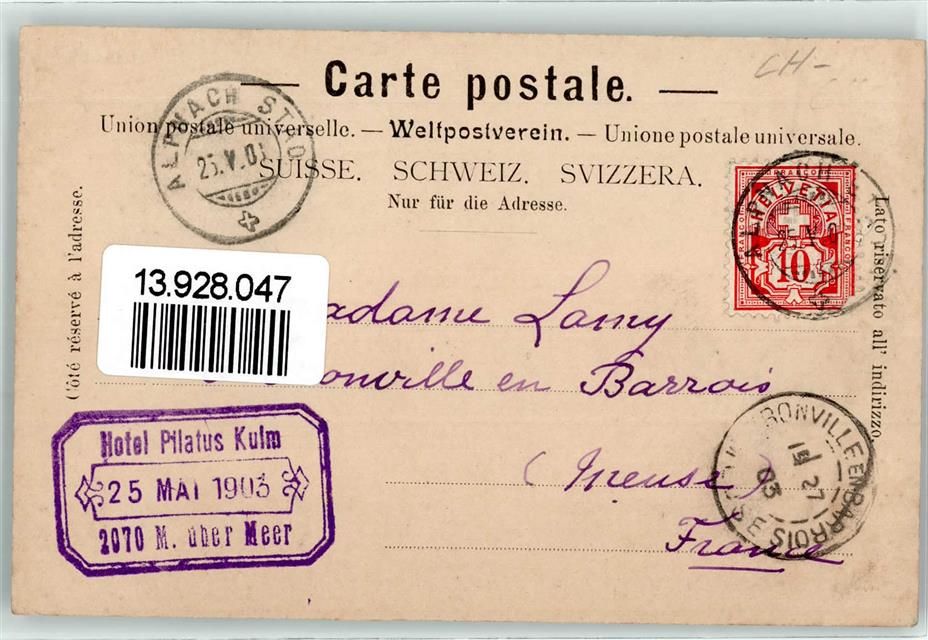 CH-
Carte postale.
Union postale universelle. — Weltpostverein. — Unione postale universale.
SUISSE. SCHWEIZ. SVIZZERA.
Nur für die Adresse.
ALPNACH STAD
25.V.03
Côté réservé à l'adresse.
Lato riservato all' indirizzo.
HELVETIA
FRANCO
10
ALPNACH
13.928.047
adame Lamy
onville en Barrois
(Meuse)
France
Hotel Pilatus Kulm
25 MAI 1903
2070 M. über Meer
BONVILLE EN BARROIS
27
03